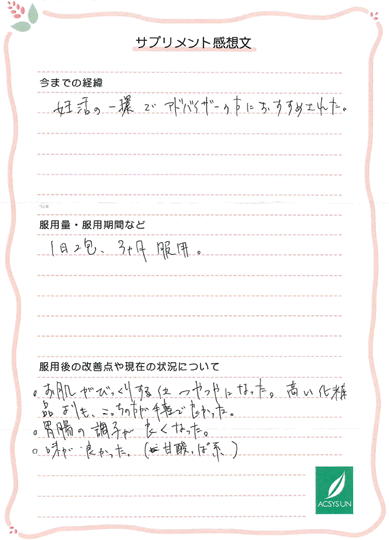 サプリメント感想文
今までの経緯
妊活の一環でアドバイザーの方におすすめされた。
服用量・服用期間など
1日2包、3ヶ月服用。
服用後の改善点や現在の状況について
。お肌がびっくりする位つやつやになった。高い化粧
品よりも、こっちの方が手軽で良かった。
。胃腸の調子が良くなった。
。味が良かった。(甘酸っぱ系)
ACSYSUN